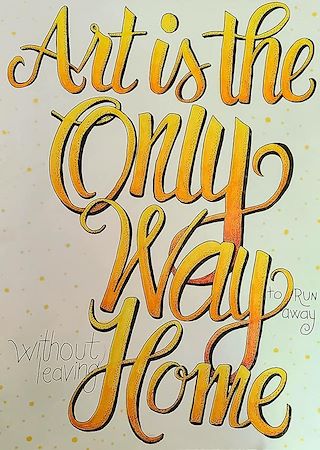 Art is the
Only
Way
to Run
away
Without
leaving
Home